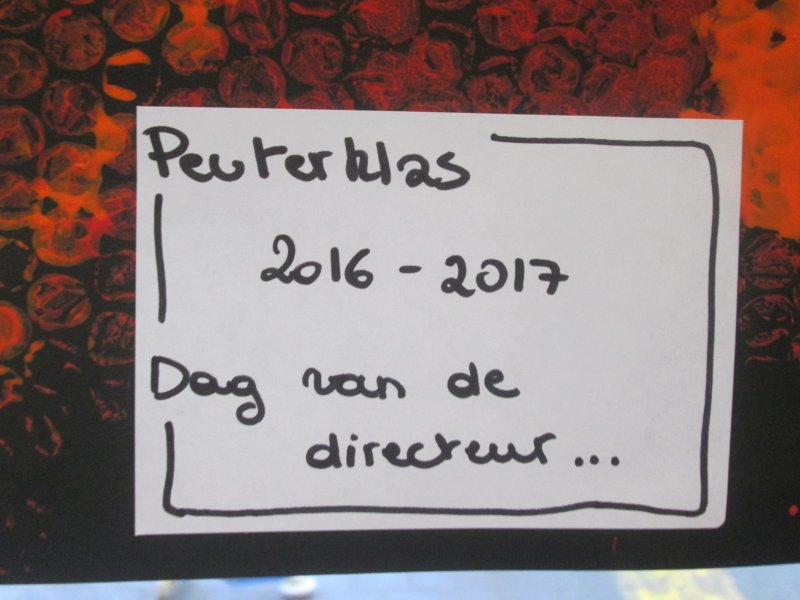 Peuterklas
2016 - 2017
Dag van de
directeur...